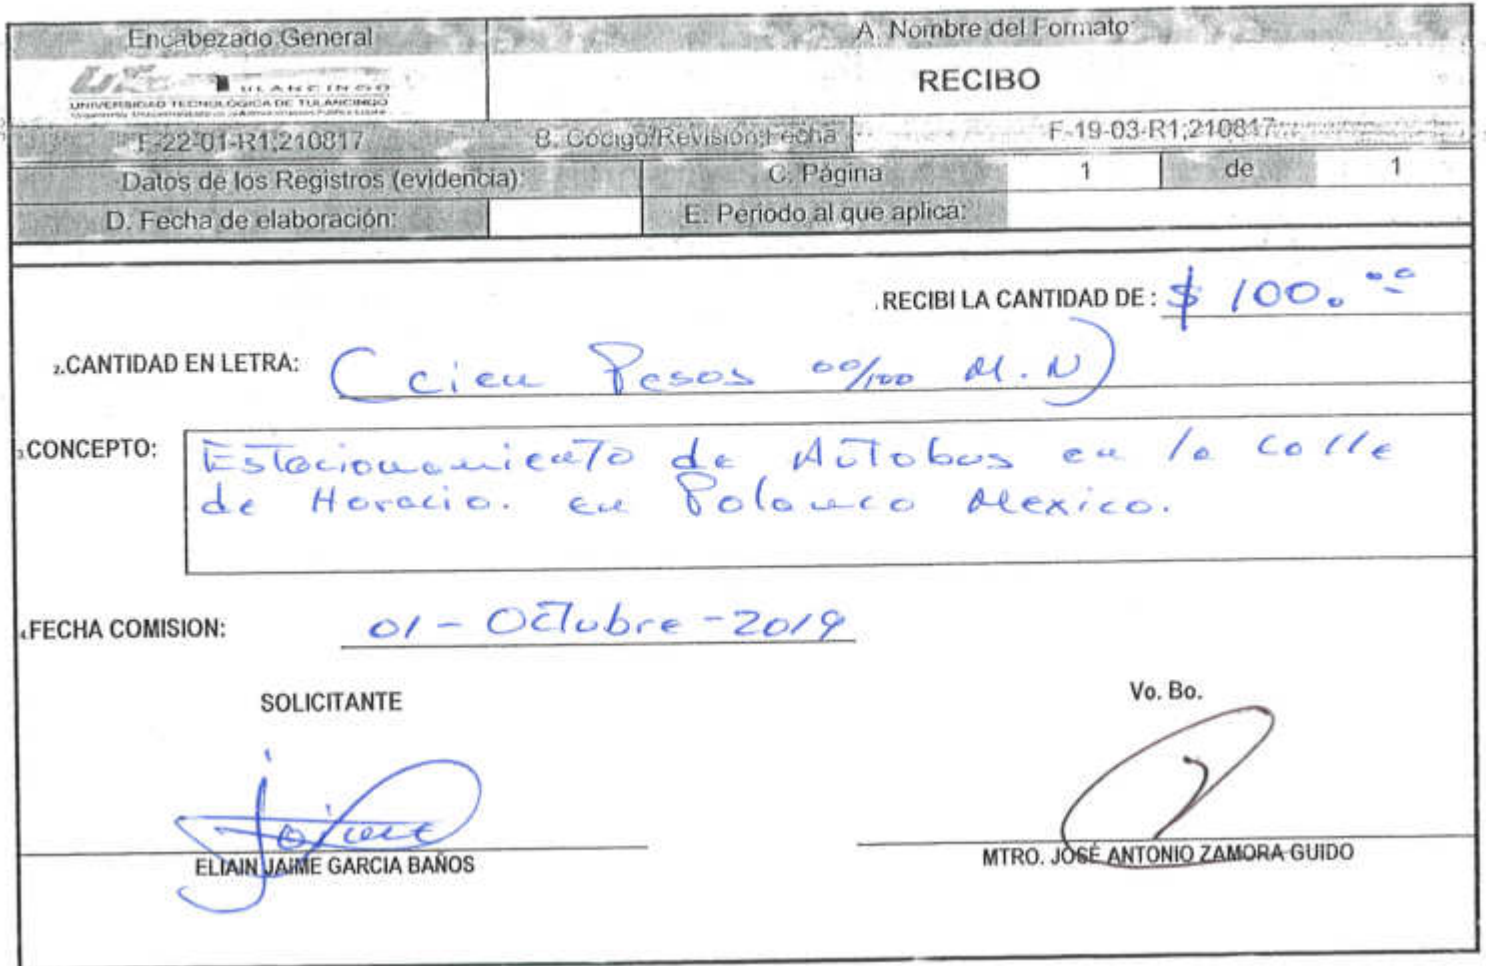 Encabezado General
A. Nombre del Formato
TULANCINGO
UNIVERSIDAD TECNOLÓGICA DE TULANCINGO
RECIBO
F-22-01-R1;210817
B. Código/Revisión;Fecha
F-19-03-R1;210817
Datos de los Registros (evidencia):
C. Página
1 de 1
D. Fecha de elaboración:
E. Periodo al que aplica:
1.RECIBI LA CANTIDAD DE : $ 100.00
2.CANTIDAD EN LETRA: (cien Pesos 00/100 M.N)
3.CONCEPTO: Estacionamiento de Autobus en la calle
de Horacio. en Polanco Mexico.
4.FECHA COMISION: 01-Octubre-2019
SOLICITANTE
Vo. Bo.
Jaime
ELIAIN JAIME GARCIA BAÑOS
MTRO. JOSÉ ANTONIO ZAMORA GUIDO